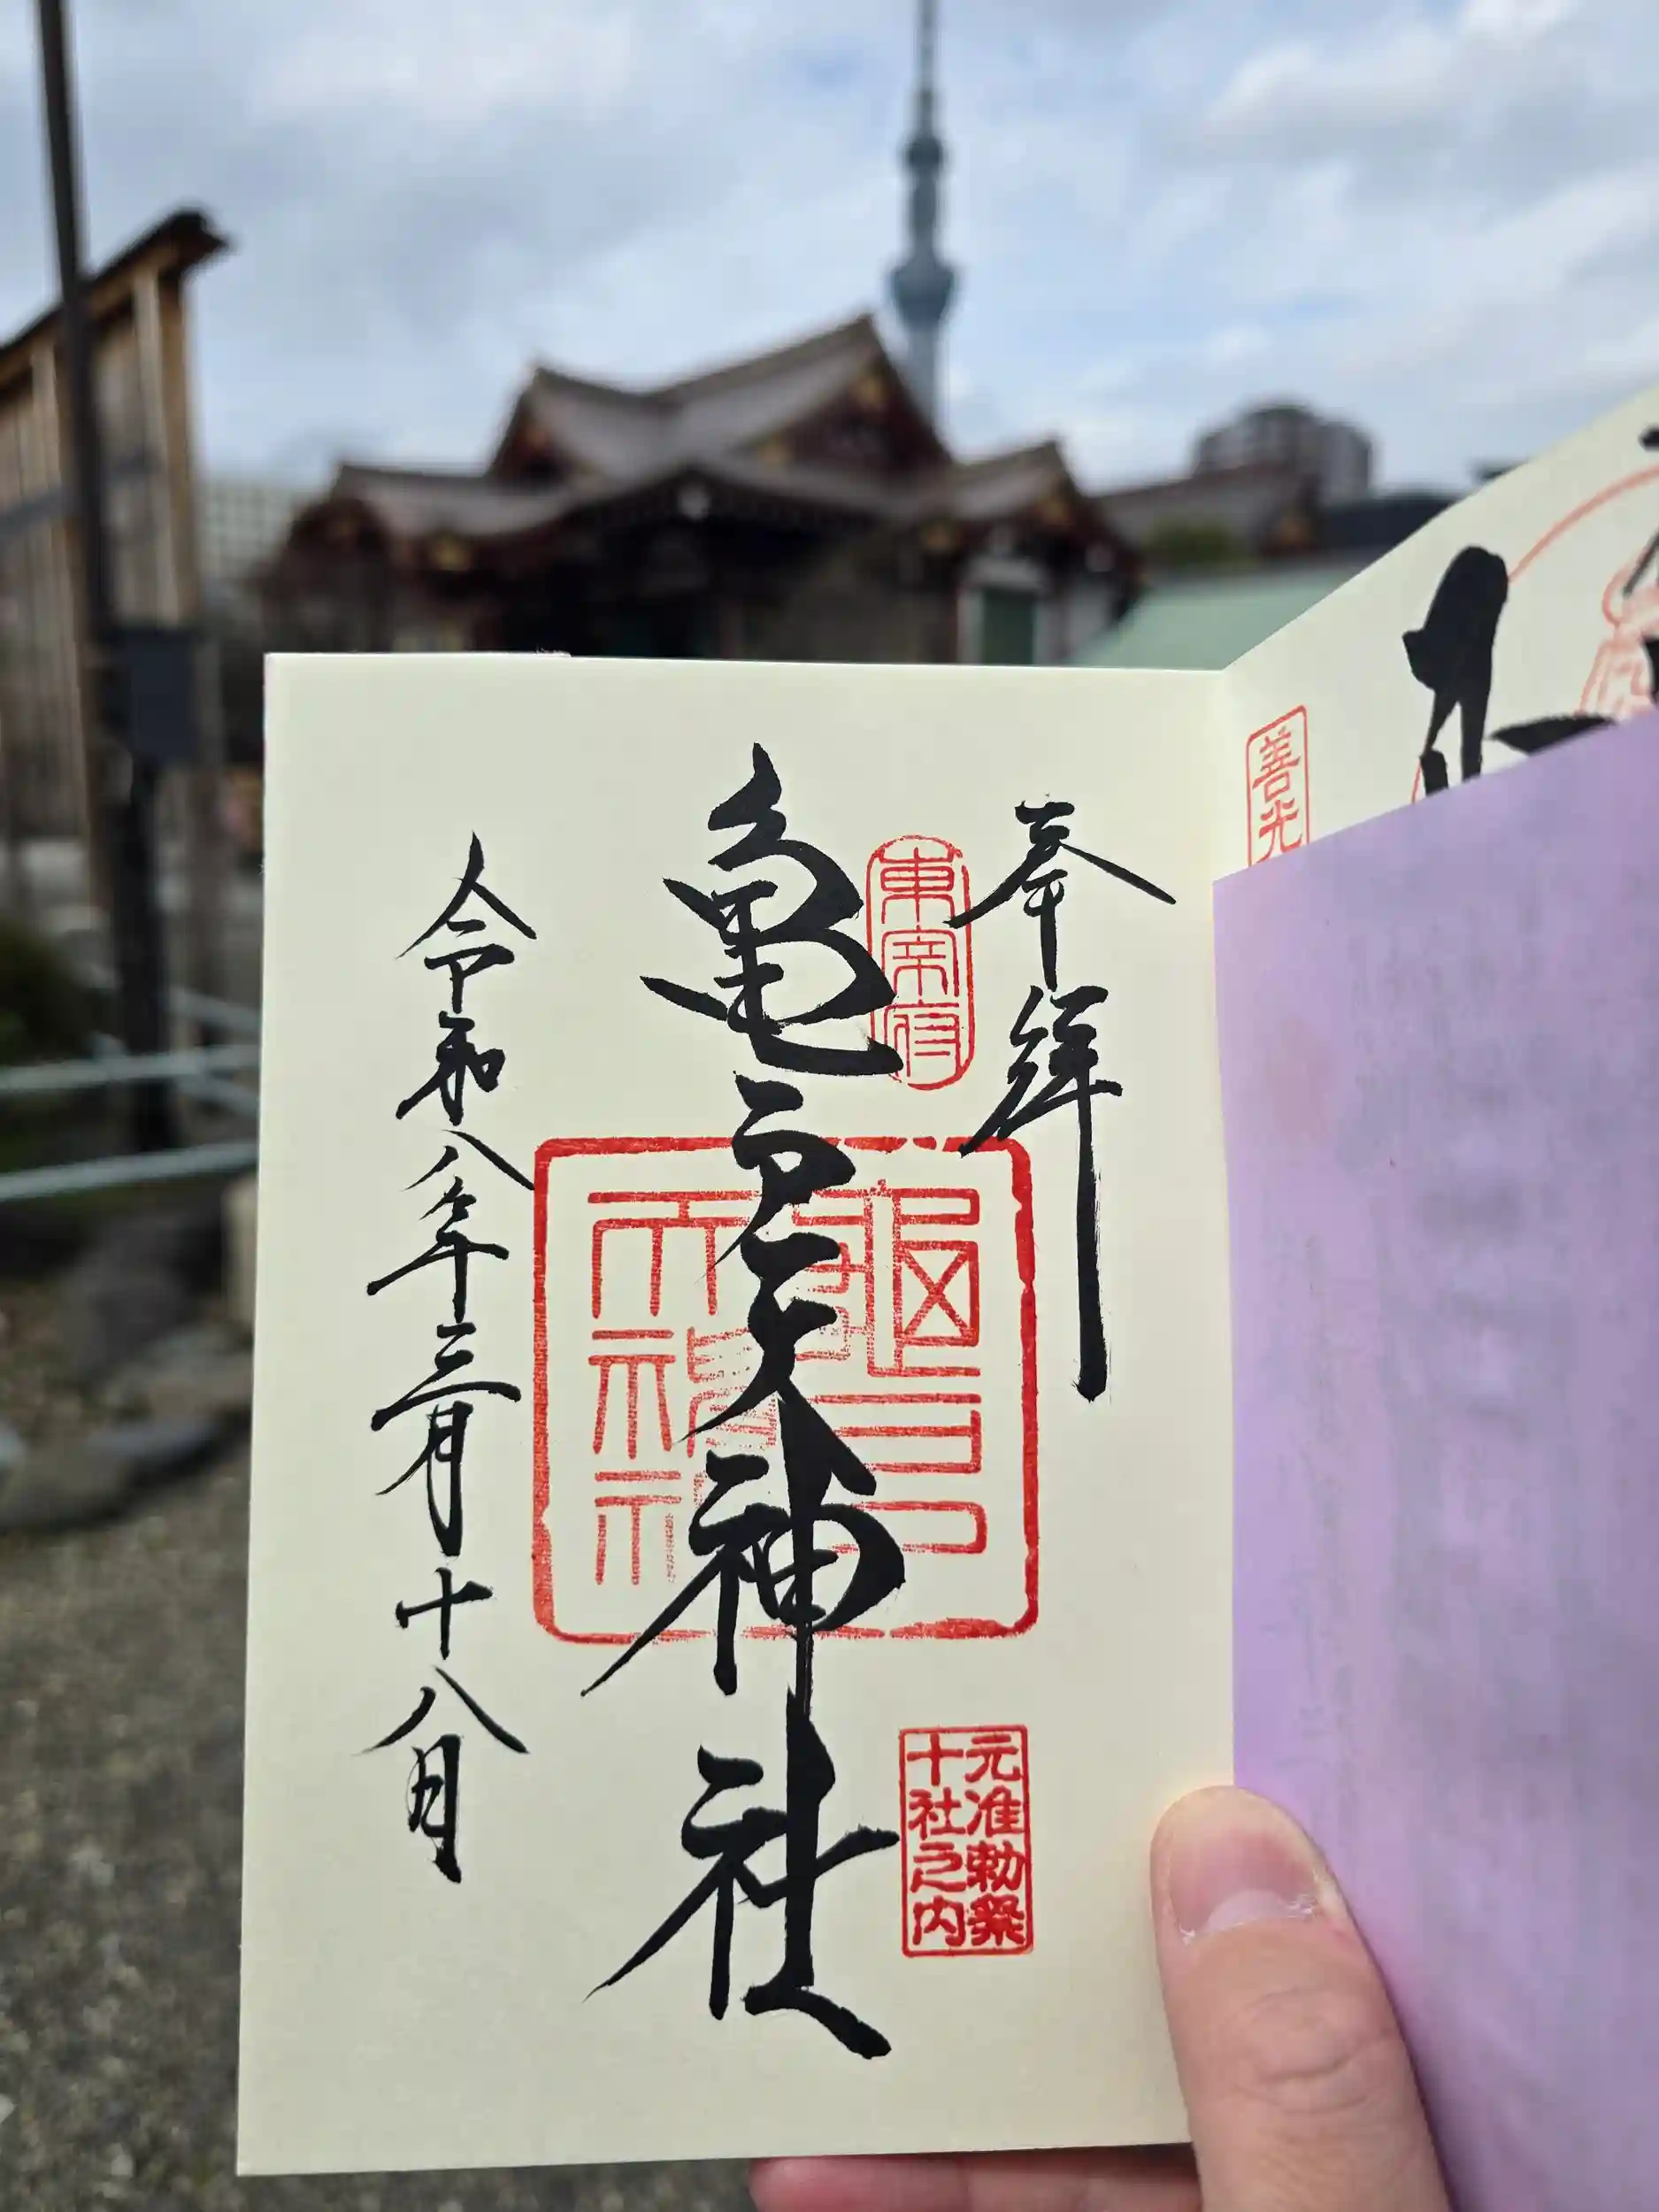 善光
奉拝
東宰府
亀戸天神社
龜戸
天神社
元准勅祭
十社之内
令和八年三月十八日